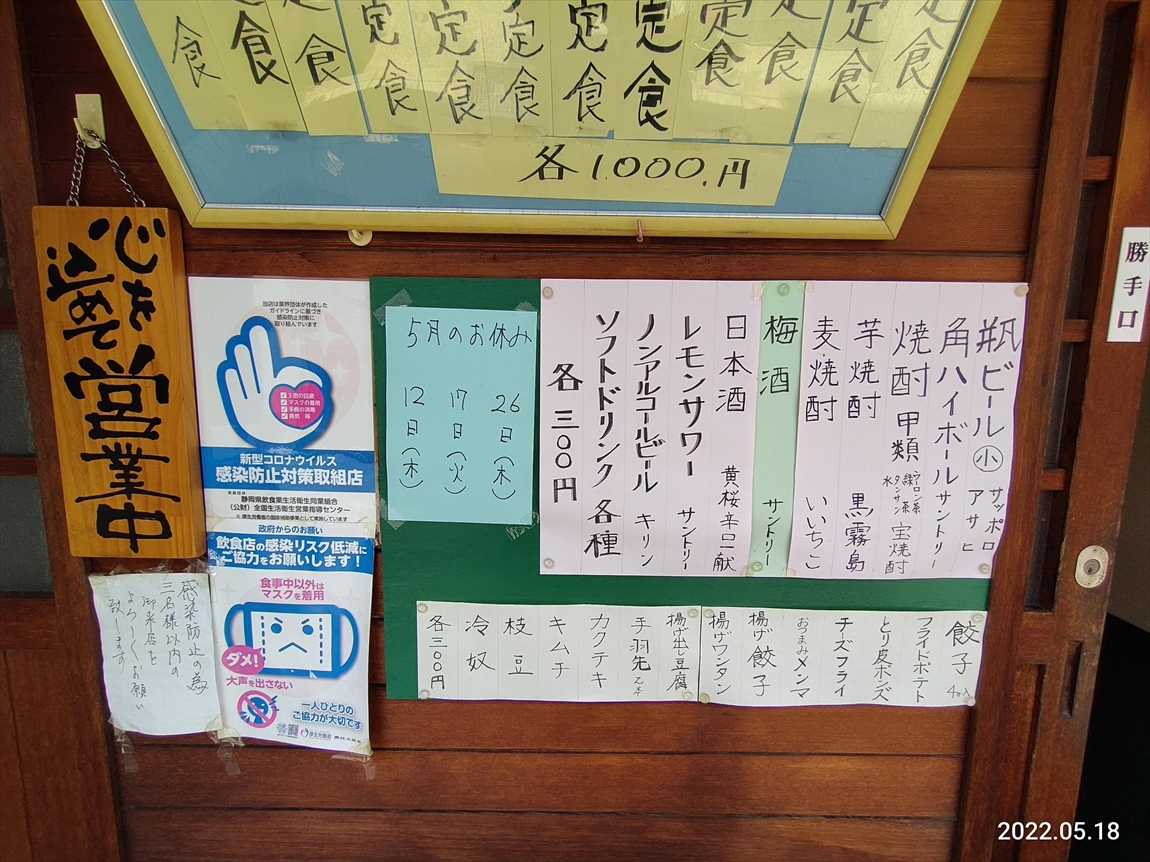 定食
食
定食
定食
定食
定食
定食
定食
定食
定食
定食
各1.000.円
心を
込めて
営業中
勝手口
当店は業界団体が作成した
ガイドラインに基づき
感染防止対策に
取り組んでいます
3密の回避
マスクの着用
手指の消毒
換気 等
新型コロナウイルス
感染防止対策取組店
静岡県飲食業生活衛生同業組合
(公財)全国生活衛生営業指導センター
政府からのお願い
飲食店の感染リスク低減に
ご協力をお願いします!
食事中以外は
マスクを着用
ダメ!
大声を出さない
一人ひとりの
ご協力が大切です
厚生労働省
感染防止の為
三名様以内の
御来店を
よろしくお願い
致します
5月のお休み
12日(木)
17日(火)
26日(木)
瓶ビール 小 サッポロ アサヒ
角ハイボール サントリー
焼酎 甲類 宝焼酎
芋焼酎 黒霧島
麦焼酎 いいちこ
梅酒 サントリー
日本酒 黄桜辛口一献
レモンサワー サントリー
ノンアルコールビール キリン
ソフトドリンク各種
各三〇〇円
餃子 4ヶ入
フライドポテト
とり皮ポンズ
チーズフライ
おつまみメンマ
揚げ餃子
揚げワンタン
揚げ出し豆腐
手羽先 2本
カクテキ
キムチ
枝豆
冷奴
各三〇〇円
2022.05.18